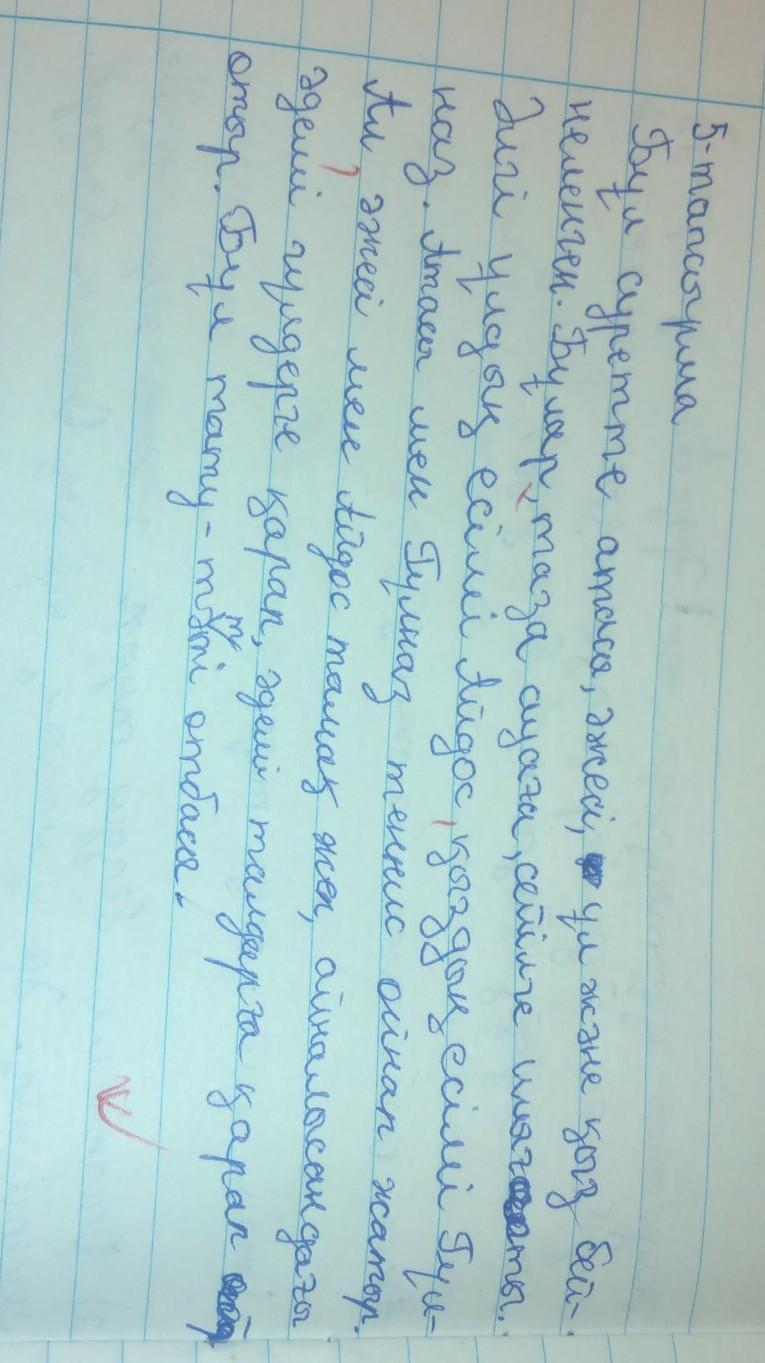 5-тапсырма
Бұл суретте атасы, әжесі, ұл және қыз бей-
неленген. Бұлар, таза ауаға, сейілге шығыпты.
Әлгі ұлдың есімі Айдос, қыздың есімі Гүл-
наз. Атасы мен Гүлназ теннис ойнап жатыр.
Ал әжей мен Айдос тамақ жеп, айналысандағы
әдемі гүлдерге қарап, әдемі талдарға қарап
отыр. Бұл тату-тәтті отбасы!